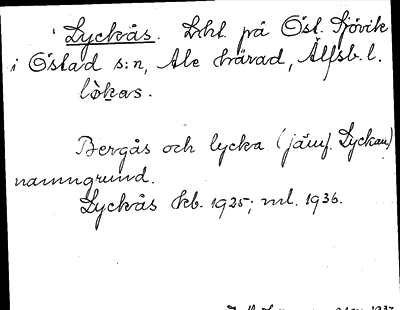 Lyckås. Lht. på Östl. Sjövik
i Östad s:n, Ale härad, Älfsb. l.
lòkas.
Bergås och lycka (jämf. Lyckan)
namngrund.
Lyckås kb. 1925; ml. 1936.
1937